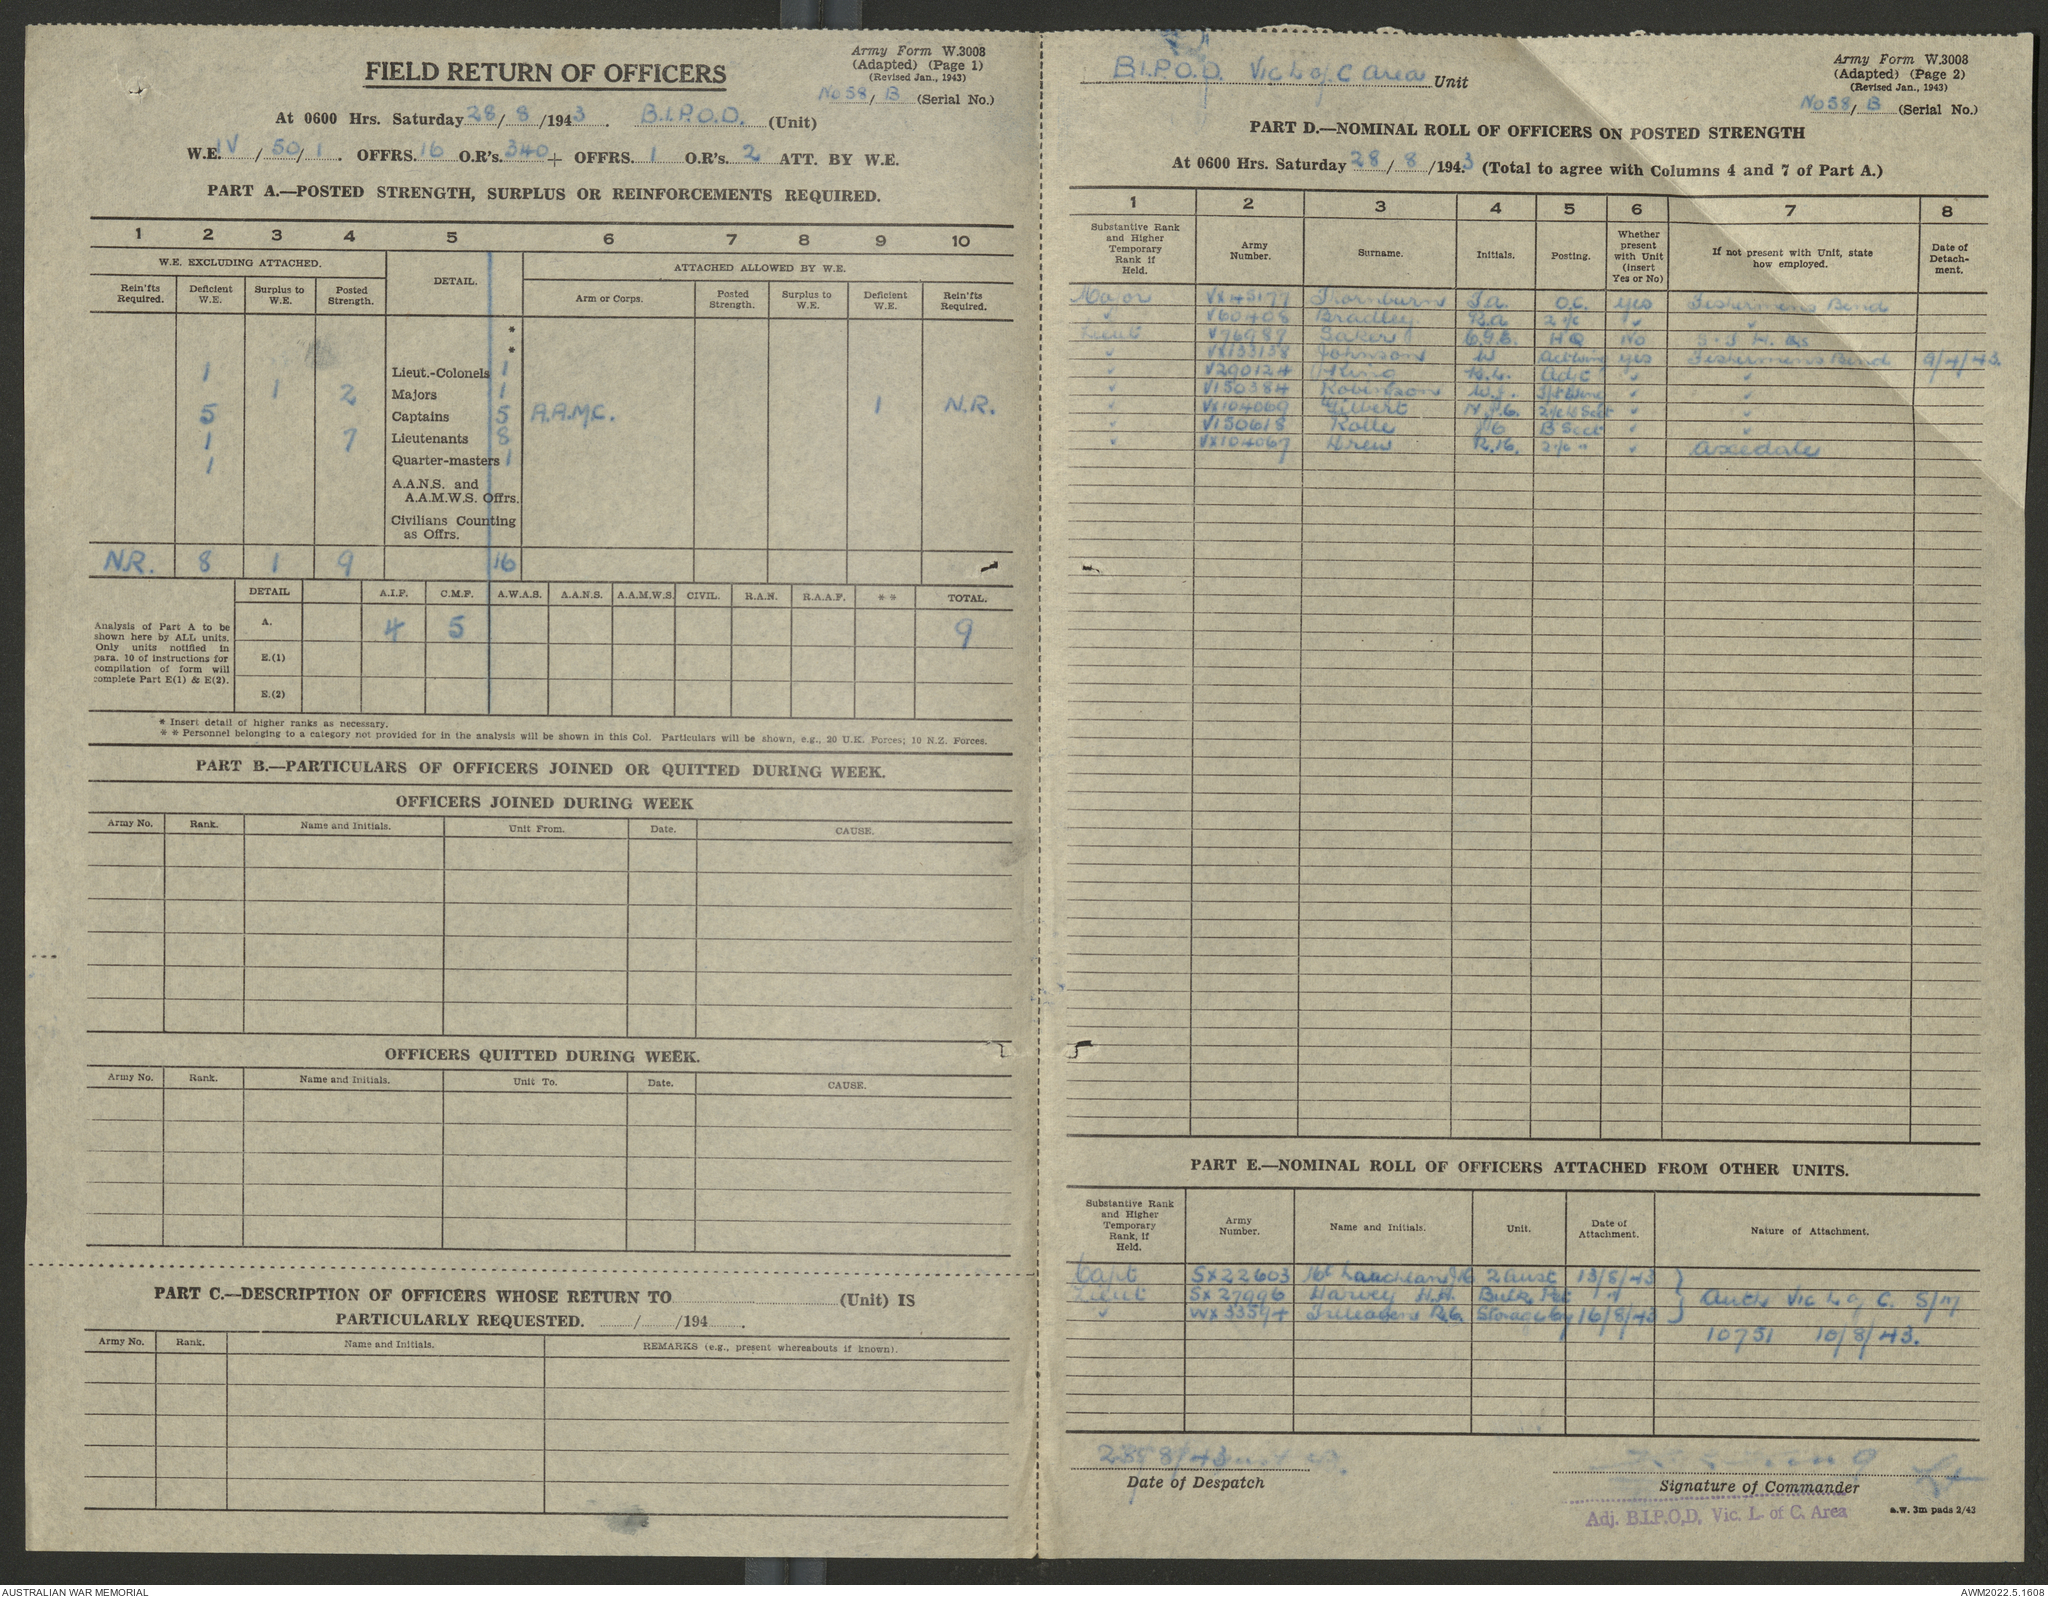 Army Form W.3008
(Adapted) (Page 1)
(Revised Jan., 1943)
FIELD RETURN OF OFFICERS
No 58/ B (Serial No.)
At 0600 Hrs. Saturday 28/ 8 /1943. B.I.P.O.D. (Unit)
W.E. IV / 50/ 1 . OFFRS. 16 O.R's. 340 + OFFRS. 1 O.R's. 2 ATT. BY W.E.
PART A.—POSTED STRENGTH, SURPLUS OR REINFORCEMENTS REQUIRED.
1 2 3 4 5 6 7 8 9 10
W.E. EXCLUDING ATTACHED. DETAIL. ATTACHED ALLOWED BY W.E.
Rein'fts Required. Deficient W.E. Surplus to W.E. Posted Strength. Arm or Corps. Posted Strength. Surplus to W.E. Deficient W.E. Rein'fts Required.
*
*
1 Lieut.-Colonels 1
1 2 Majors 1
5 Captains 5 A.A.M.C. 1 N.R.
1 7 Lieutenants 8
1 Quarter-masters 1
A.A.N.S. and
A.A.M.W.S. Offrs.
Civilians Counting
as Offrs.
N.R. 8 1 9 16
DETAIL A.I.F. C.M.F. A.W.A.S. A.A.N.S. A.A.M.W.S. CIVIL. R.A.N. R.A.A.F. * * TOTAL.
Analysis of Part A to be
shown here by ALL units.
Only units notified in
para. 10 of instructions for
compilation of form will
complete Part E(1) & E(2).
A. 4 5 9
E.(1)
E.(2)
* Insert detail of higher ranks as necessary.
* * Personnel belonging to a category not provided for in the analysis will be shown in this Col. Particulars will be shown, e.g., 20 U.K. Forces; 10 N.Z. Forces.
PART B.—PARTICULARS OF OFFICERS JOINED OR QUITTED DURING WEEK.
OFFICERS JOINED DURING WEEK
Army No. Rank. Name and Initials. Unit From. Date. CAUSE.
OFFICERS QUITTED DURING WEEK.
Army No. Rank. Name and Initials. Unit To. Date. CAUSE.
PART C.—DESCRIPTION OF OFFICERS WHOSE RETURN TO (Unit) IS
PARTICULARLY REQUESTED. / /194 .
Army No. Rank. Name and Initials. REMARKS (e.g., present whereabouts if known).
B.I.P.O.D. Vic L of C Area Unit
Army Form W.3008
(Adapted) (Page 2)
(Revised Jan., 1943)
No 58/ B (Serial No.)
PART D.—NOMINAL ROLL OF OFFICERS ON POSTED STRENGTH
At 0600 Hrs. Saturday 28 / 8 /1943 (Total to agree with Columns 4 and 7 of Part A.)
1 2 3 4 5 6 7 8
Substantive Rank and Higher Temporary Rank if Held. Army Number. Surname. Initials. Posting. Whether present with Unit (Insert Yes or No) If not present with Unit, state how employed. Date of Detachment.
Major VX45177 Thornburn O.C. Yes Fishermens Bend
" V60408 Bradley 2 i/c " "
Lieut V76987 HQ No
" VX133138 Johnson W Yes Fishermens Bend 9/4/43
" V290124 King Adjt " "
" V150384 Robertson W.J. " "
" VX104069 Gilbert " "
" V150618 Rolle B Sect " "
" VX104067 Drew " Axedale
PART E.—NOMINAL ROLL OF OFFICERS ATTACHED FROM OTHER UNITS.
Substantive Rank and Higher Temporary Rank, if Held. Army Number. Name and Initials. Unit. Date of Attachment. Nature of Attachment.
Capt SX22603 2 Aust 13/8/43
Lieut SX27996 Harvey H.H. Bulk Pet " Auth Vic L of C. S/M
" WX33594 Treleaven Storage Coy 16/8/43
10751 10/8/43.
Date of Despatch
Signature of Commander
Adj. B.I.P.O.D, Vic. L. of C. Area
a.w. 3m pads 2/43
AUSTRALIAN WAR MEMORIAL
AWM2022.5.1608